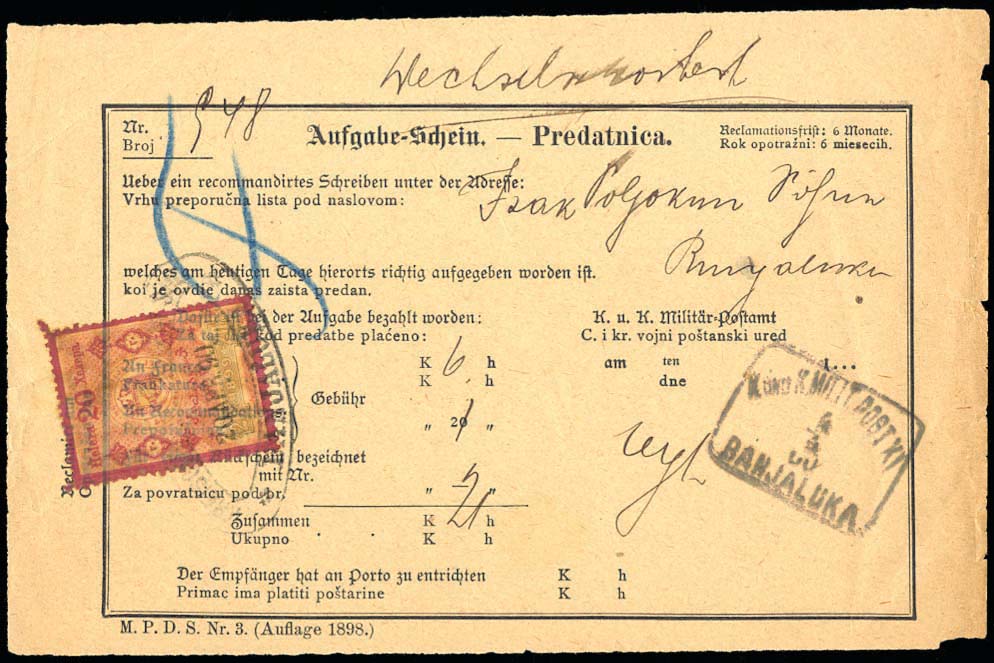 Nr.
Broj 548
Aufgabe-Schein. — Predatnica.
Reclamationsfrist: 6 Monate.
Rok opotražni: 6 miesecih.
Ueber ein recommandirtes Schreiben unter der Adresse:
Vrhu preporučna lista pod naslovom:
Isak
welches am heutigen Tage hierorts richtig aufgegeben worden ist.
koi je ovdie danas zaista predan.
bei der Aufgabe bezahlt worden:
Za taj list kod predatbe plaćeno:
K. u. K. Militär-Postamt
C. i kr. vojni poštanski ured
K h
K h
An Franco
Frankatura
Gebühr
An Recommandations
„ 20 „
am ten 1...
dne
K UND K MILIT POST XI
BANJALUKA
20 Heller
Rückschein bezeichnet
mit Nr.
Za povratnicu pod br. „ „
Zusammen K h
Ukupno K h
Der Empfänger hat an Porto zu entrichten K h
Primac ima platiti poštarine K h
M. P. D. S. Nr. 3. (Auflage 1898.)